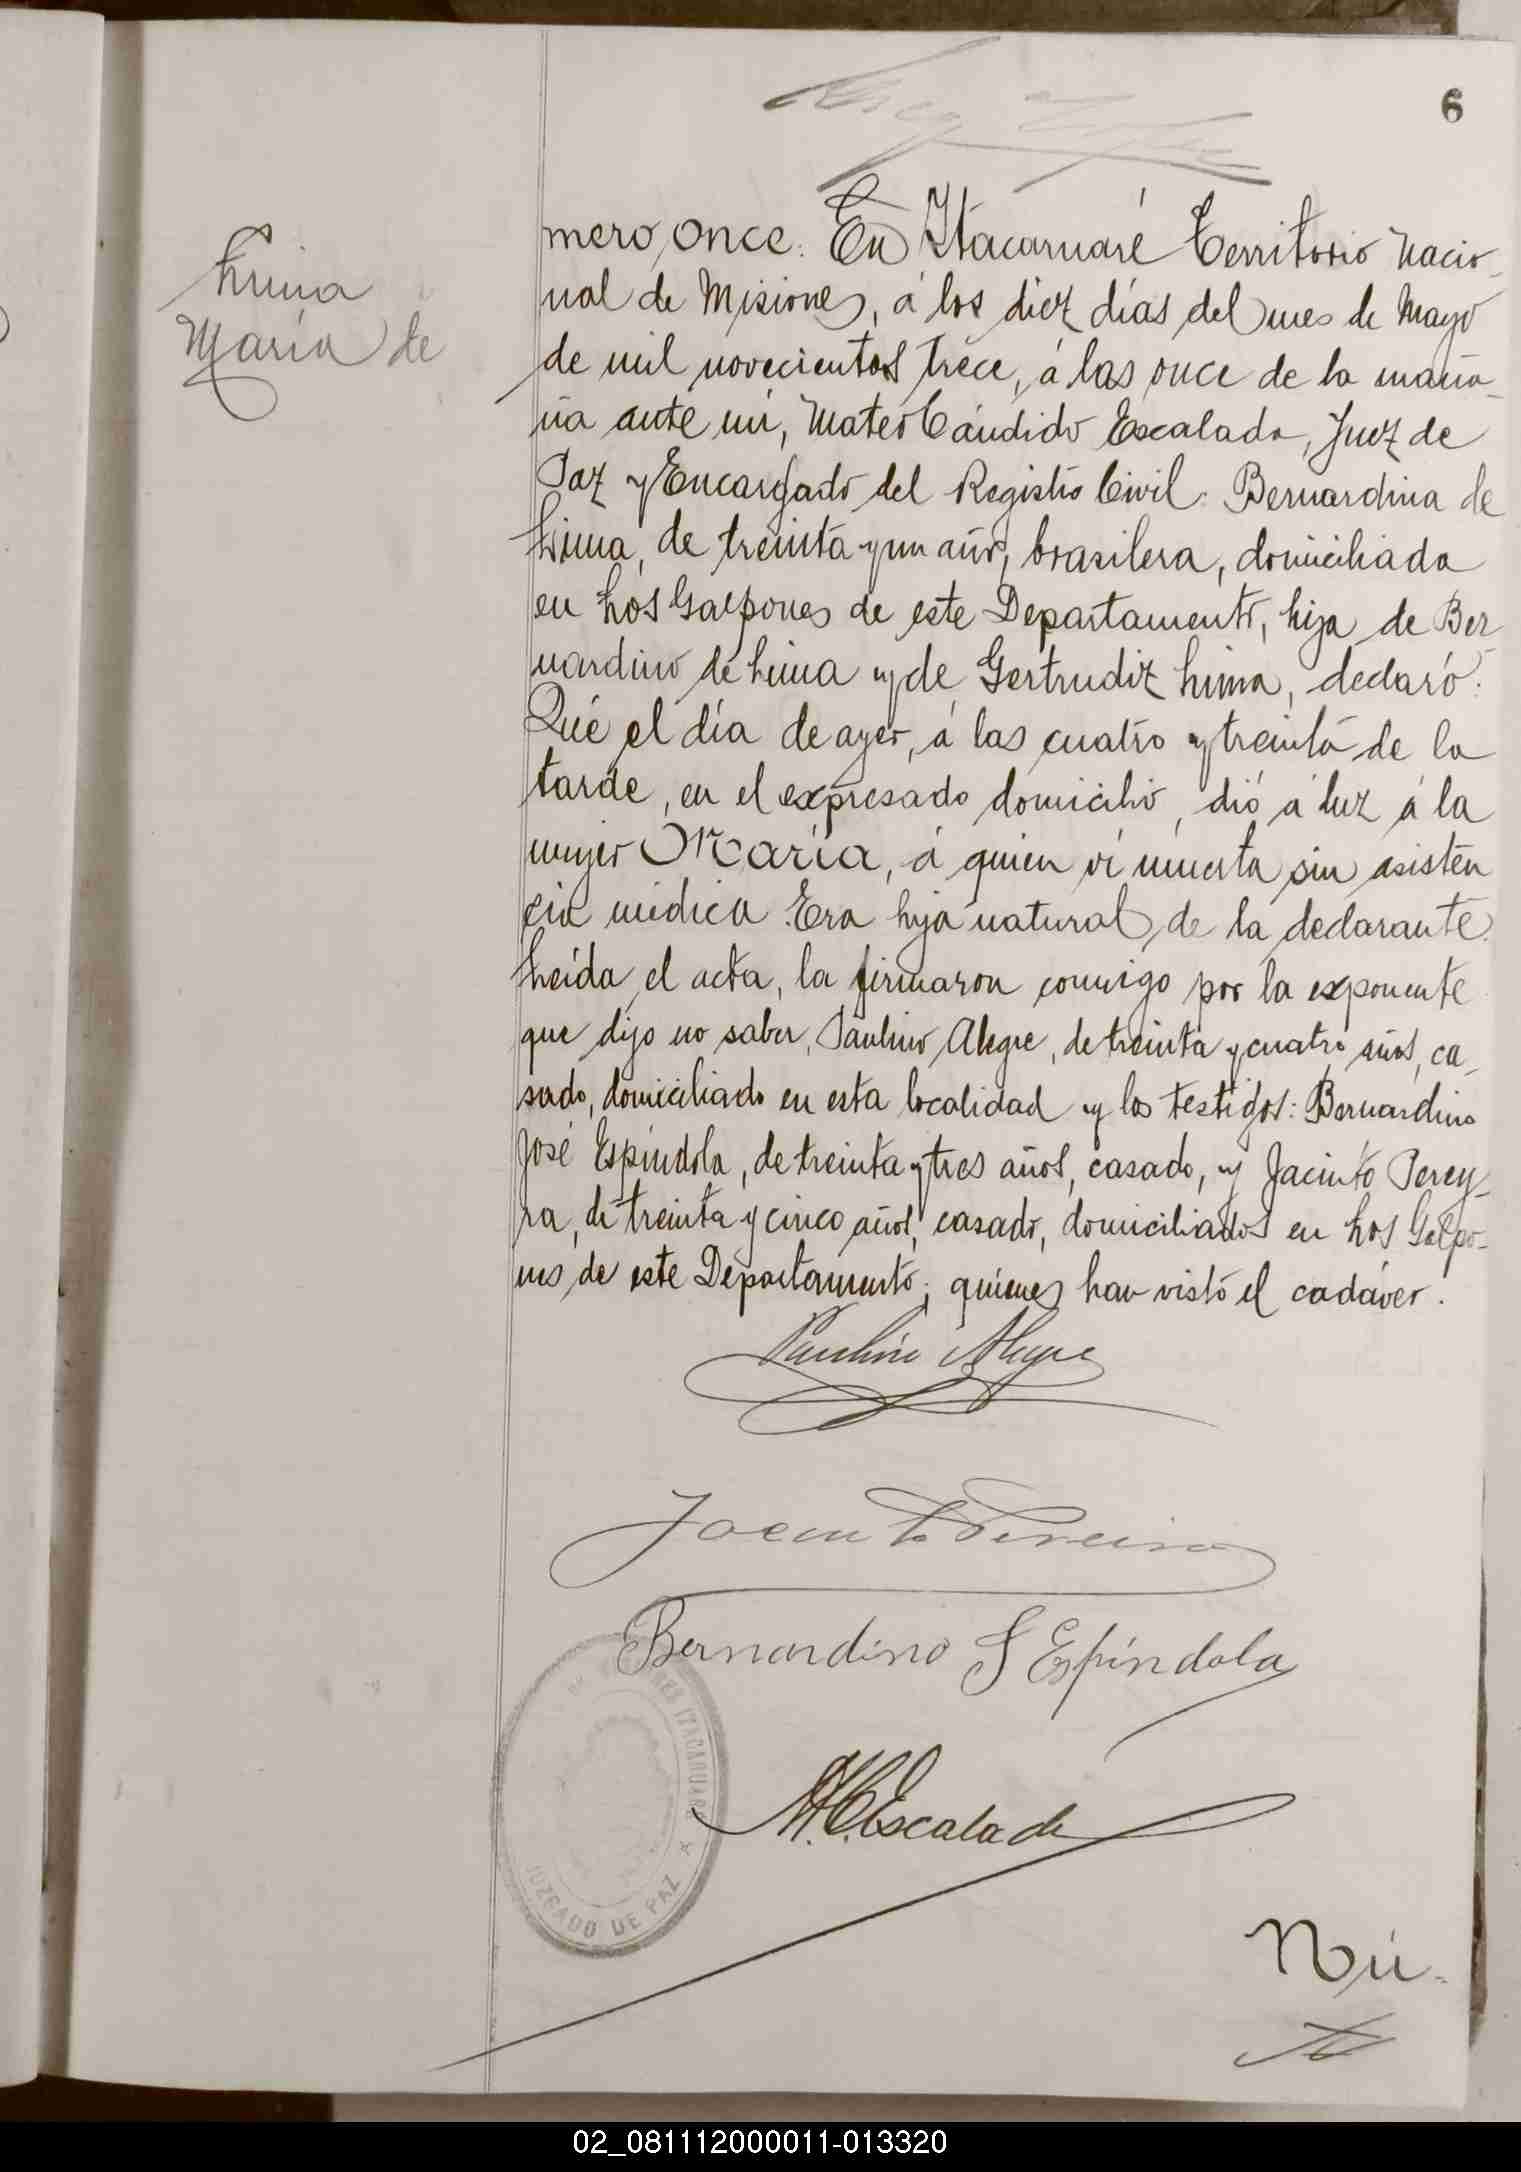 6
Lima
María de
mero, once. En Itacaruaré Territorio Nacio-
nal de Misiones, á los diez días del mes de Mayo
de mil novecientos trece, á las once de la maña-
ña ante mí, Mateo Cándido Escalada, Juez de
Paz y Encargado del Registro Civil: Bernardina de
Lima, de treinta y un año, brasilera, domiciliada
en Los Galpones de este Departamento, hija de Ber-
nardino de Lima y de Gertrudiz Lima, declaró:
Qué el día de ayer, á las cuatro y treinta de la
tarde, en el expresado domicilio, dió á luz á la
mujer María, á quien ví muerta sin asisten
cia médica. Era hija natural de la declarante.
Leída el acta, la firmaron conmigo por la exponente
que dijo no saber, Paulino Alegre, de treinta y cuatro años, ca-
sado, domiciliado en esta localidad y los testigos: Bernardino
José Espíndola, de treinta y tres años, casado, y Jacinto Perey-
ra, de treinta y cinco años, casado, domiciliados en Los Galpo-
nes de este Departamento; quienes han visto el cadáver.
Paulino Alegre
Jacinto Pereira
Bernardino S Espíndola
M.C. Escalada
ITACARUARE
JUZGADO DE PAZ
Nú-
02_081112000011-013320